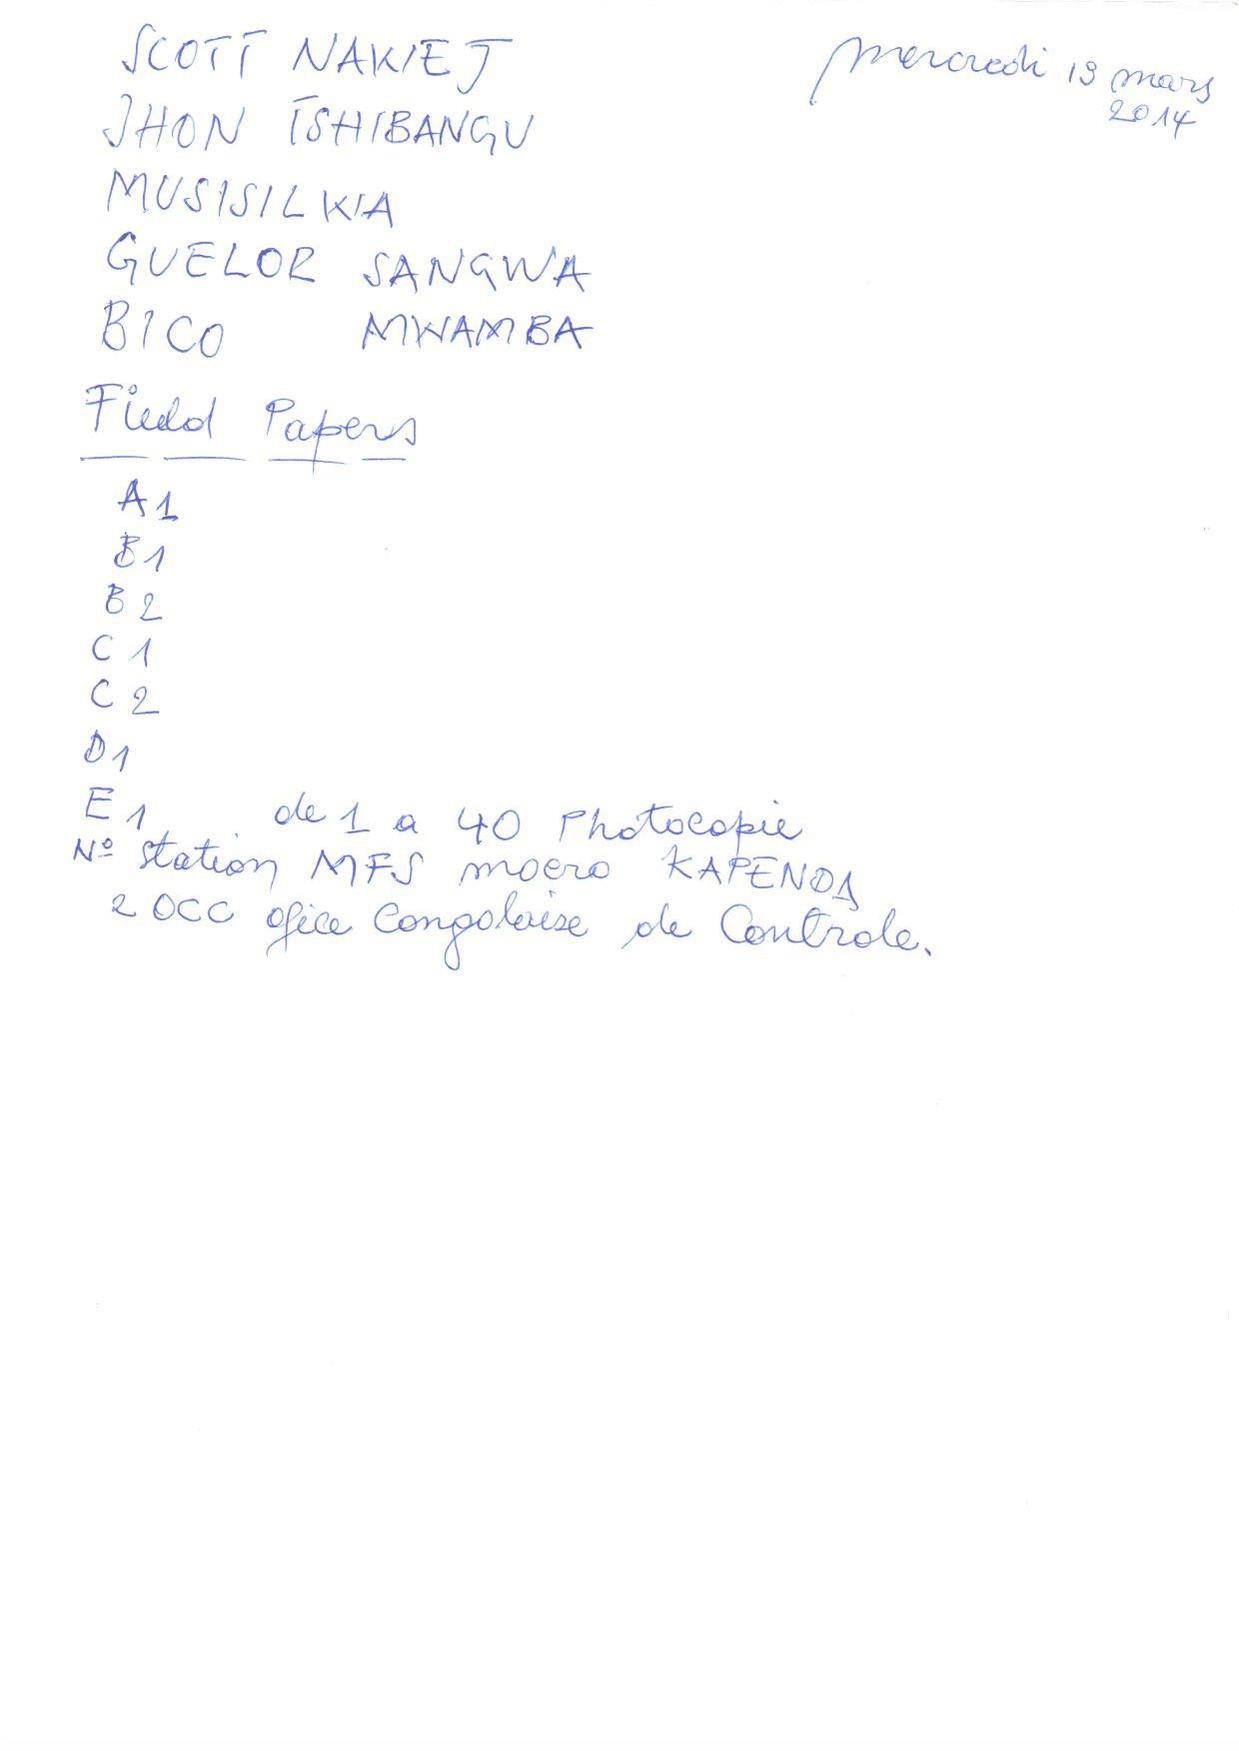 SCOTT NAKIEJ
mercredi 19 mars
2014
JHON TSHIBANGU
MUSISILKIA
GUELOR SANGWA
BICO MWAMBA
Field Papers
A1
B1
B2
C1
C2
D1
E1 de 1 a 40 Photocopie
Nº station MFS moero KAPENDA
2 OCC ofice Congolaise de Controle.